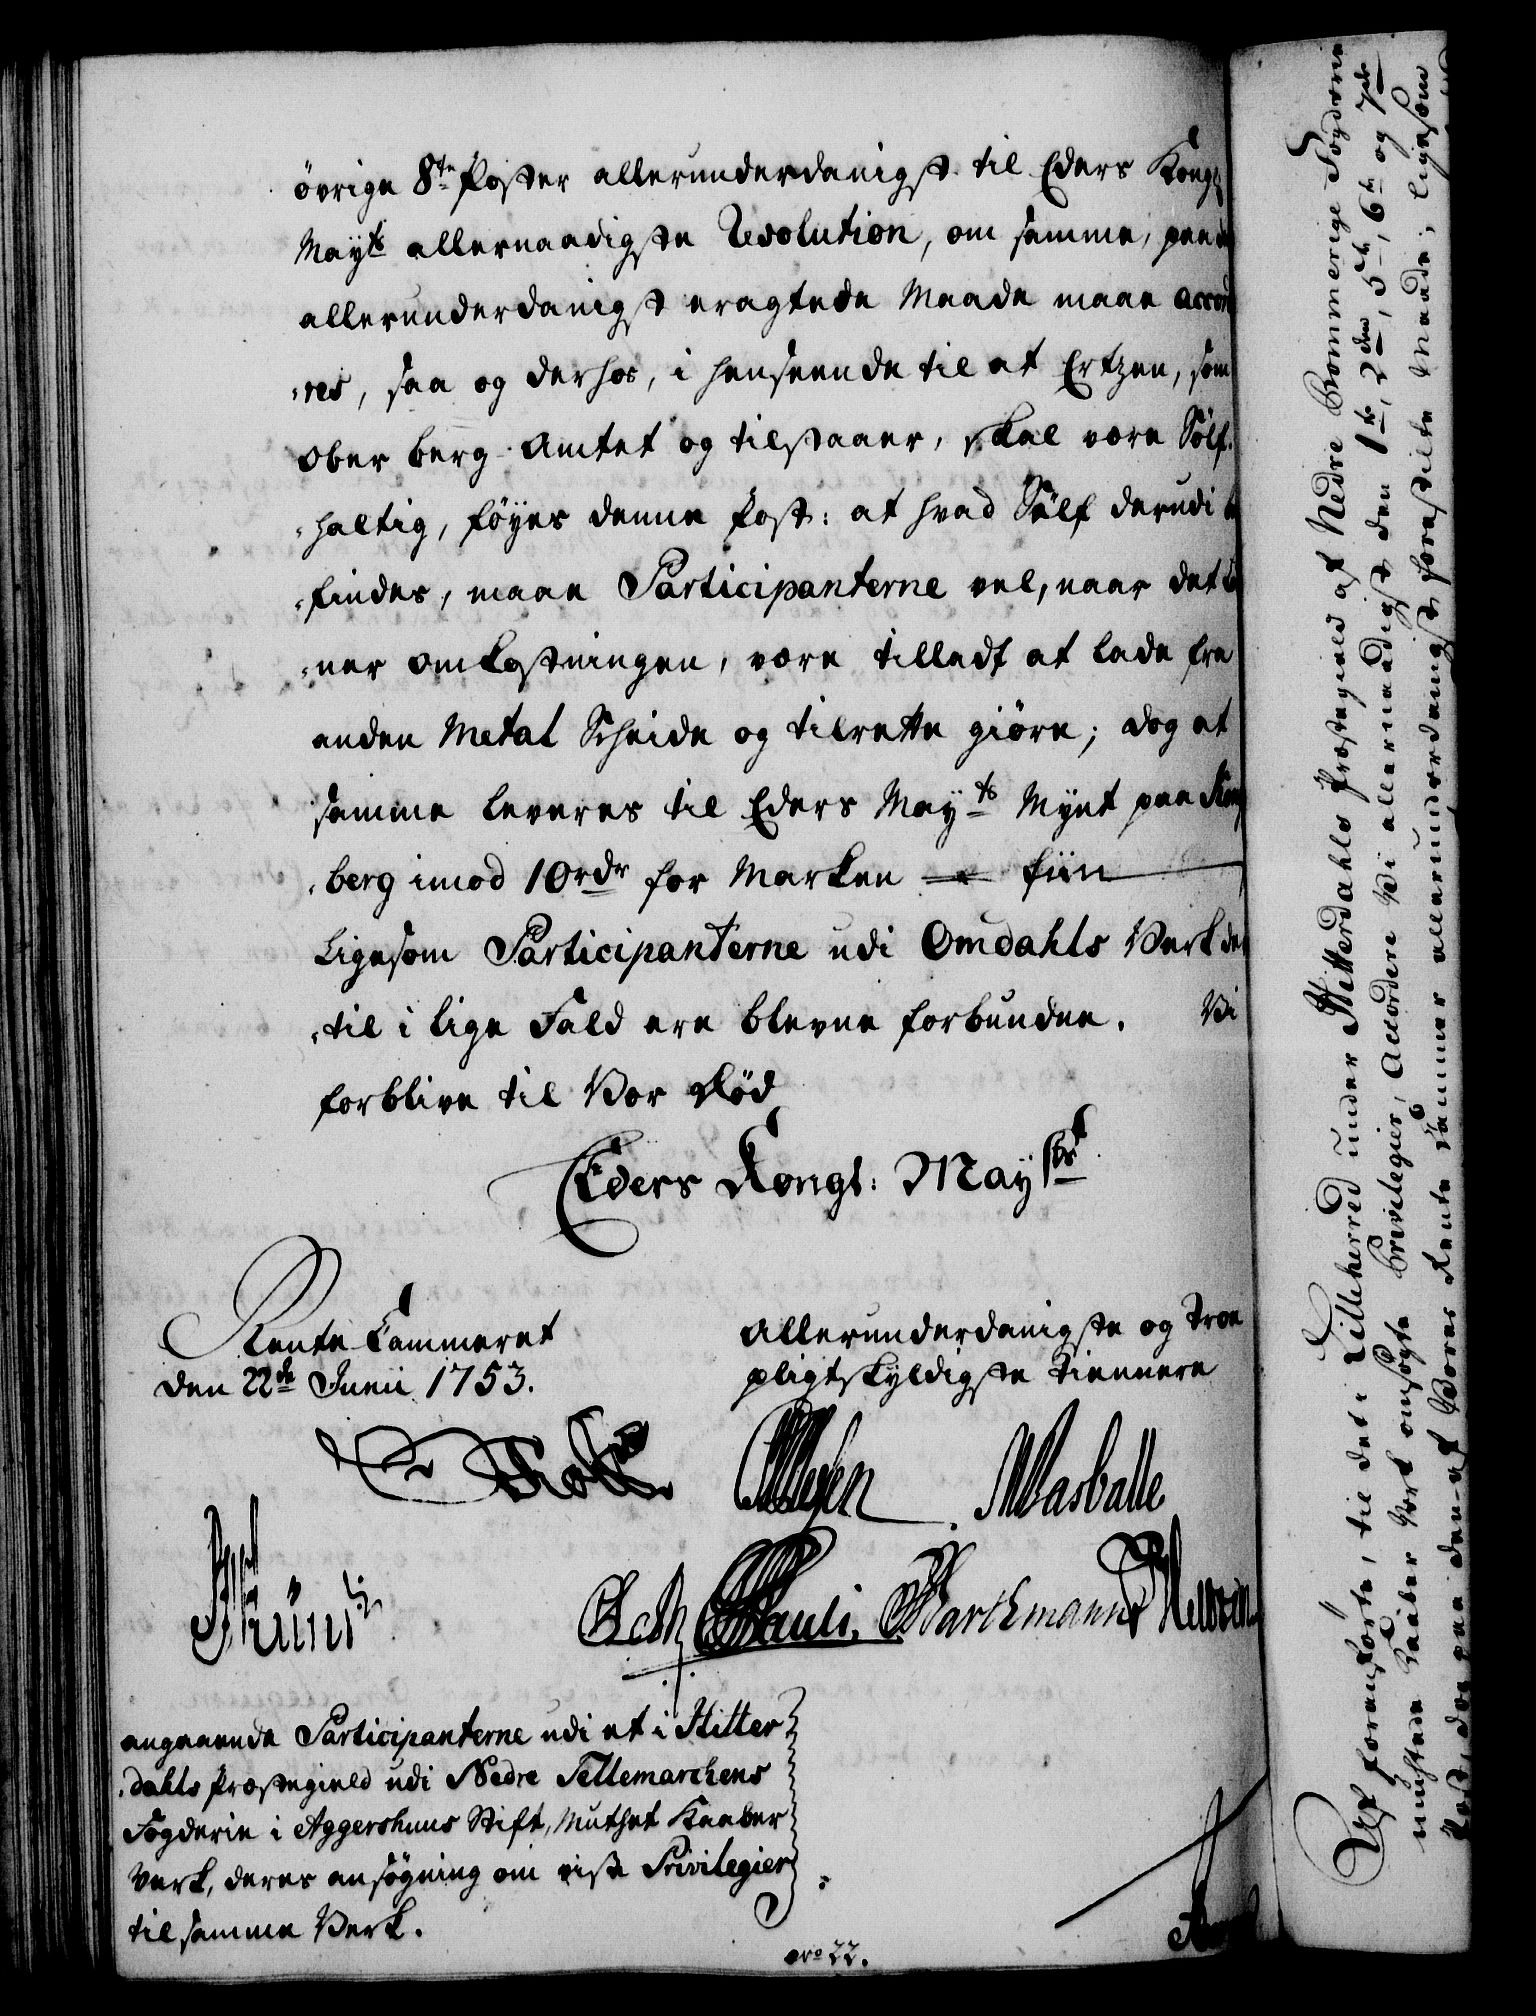 övrige 8te Poster allerunderdanigst til Eders Kongl
Mayts allernaadigste Resolution, om samme, paa
allerunderdanigst eragtede Maade maae accord
res, saa og derhos, i henseende til at Ertzen, som
Ober Berg-Amtet og tilstaaer, skal være Sölf-
haltig, föyes denne Post: at hvad Sölf derudi
findes, maae Participanterne vel, naar det
ner omkostningen, være tilladt at lade fra
anden Metal Scheide og tilrette giöre; dog at
samme leveres til Eders Mayts Mynt paa Kong
berg imod 10 rdr for Marken fiin
Ligesom Participanterne udi Omdahls Verk der
til i lige Fald ere blevne forbundne. Vi
forblive til Vor Död
Eders Kongl: Maysts
Rente Cammeret
den 22de Junii 1753.
Allerunderdanigste og Troe
pligtskyldigste Tiennere
Pauli. Barthmann
angaaende Participanterne udi et i Hitter
dahls Præstegield udi Nedre Tellemarchens
Fogderie i Aggershuus Stift, Muthet Kaaber
Verk, deres ansögning om visse Privilegier
til samme Verk.
nro 22.
Paa foranförte, til det i Lilleherred under Hitterdahls Præstegield af Nedre Fogderie
muthede Kaaber Verk ansögte Privilegier, Accordere Vi allernaadigst den 1te, 2den, 5te, 6te og 7de
Post, dog paa den af Vores Rente Cammer allerunderdanigst forestilte Maade, ligesom